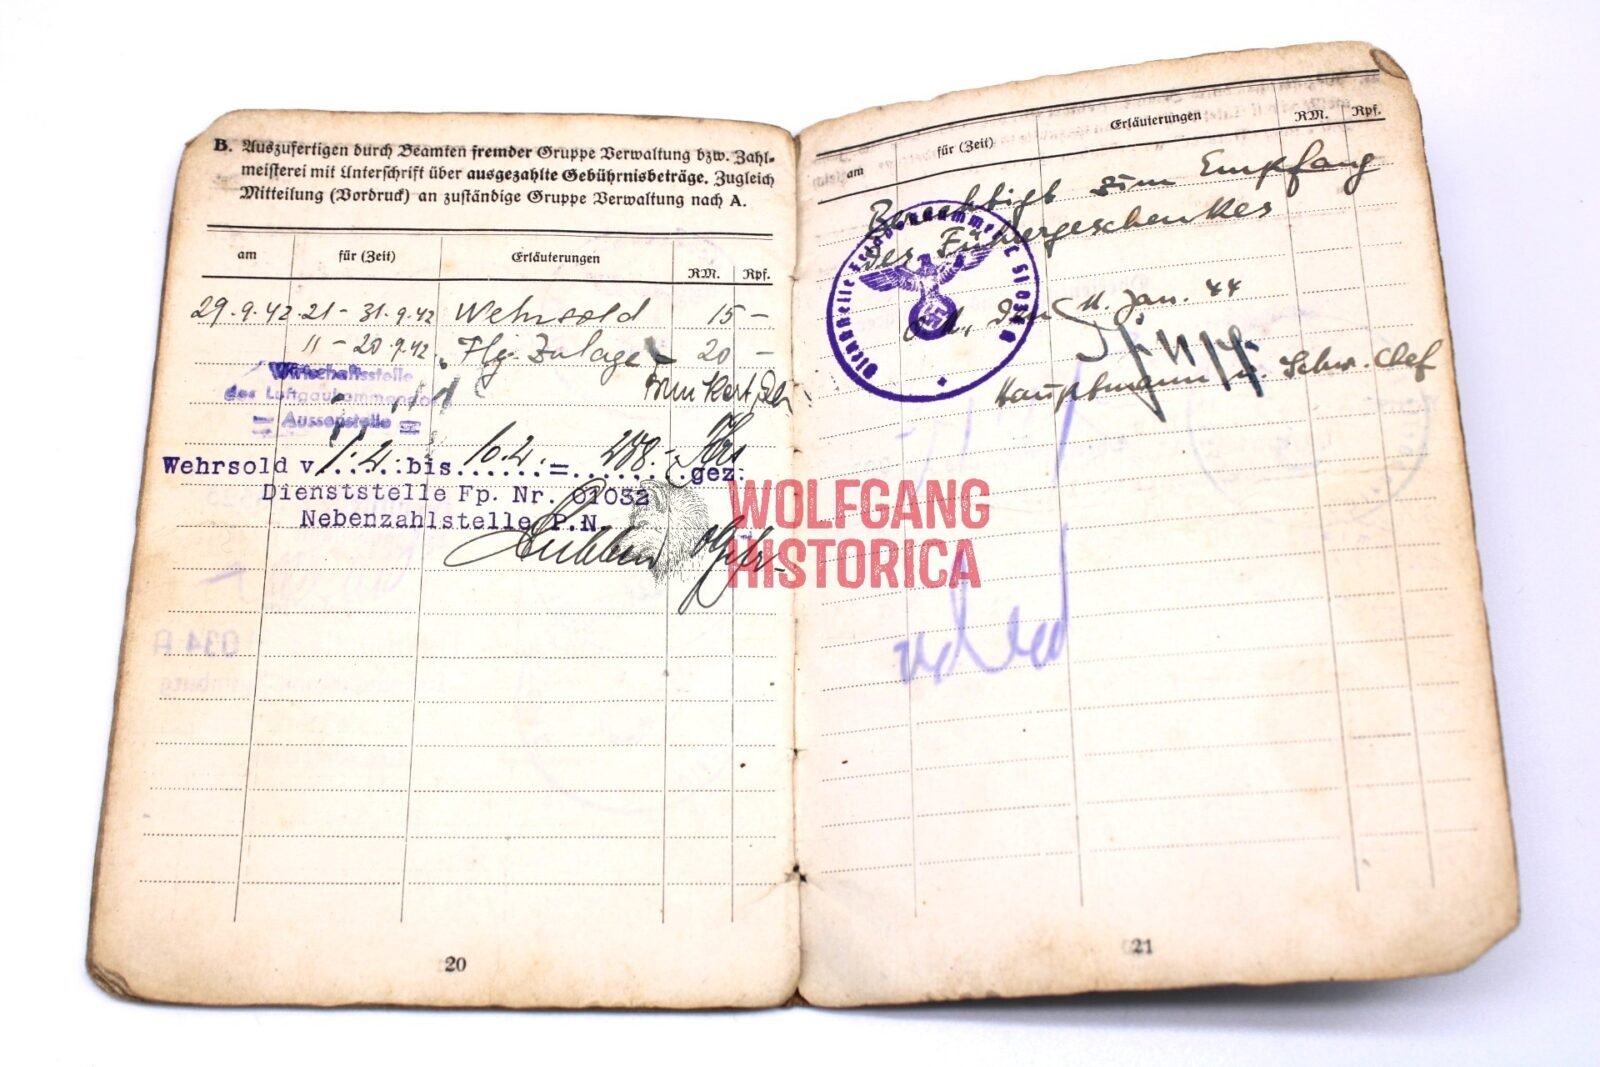 B. Auszufertigen durch Beamten fremder Gruppe Verwaltung bzw. Zahl-
meisterei mit Unterschrift über ausgezahlte Gebührnisbeträge. Zugleich
Mitteilung (Vordruck) an zuständige Gruppe Verwaltung nach A.
am für (Zeit) Erläuterungen RM. Rpf.
29.9.42 21 - 31.9.42 Wehrsold 15 -
11 - 20.9.42 Flg. Zulage 20 -
Wirtschaftsstelle
des Luftgaukommandos
= Aussenstelle =
Wehrsold v. 1.2. bis 10.2. = 208.- gez.
Dienststelle Fp. Nr. 01032
Nebenzahlstelle P.N.
20
am für (Zeit) Erläuterungen RM. Rpf.
Berechtigt zum Empfang
des Führergeschenkes
Dienststelle Feldpostnummer L 51034
den 11. Jan. 44
Hauptmann u. Schw. Chef
21
WOLFGANG
HISTORICA